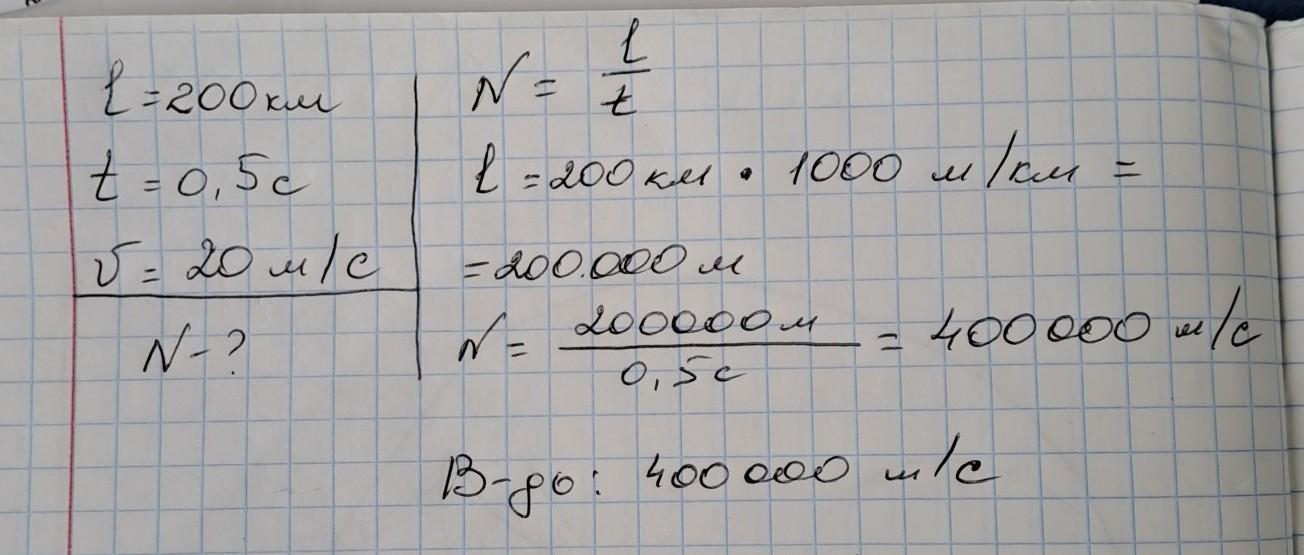 l = 200 км
t = 0,5 с
υ = 20 м/с
N - ?
N = l/t
l = 200 км · 1000 м/км =
= 200.000 м
N = 200000 м / 0,5 с = 400000 м/с
В-дь: 400 000 м/с